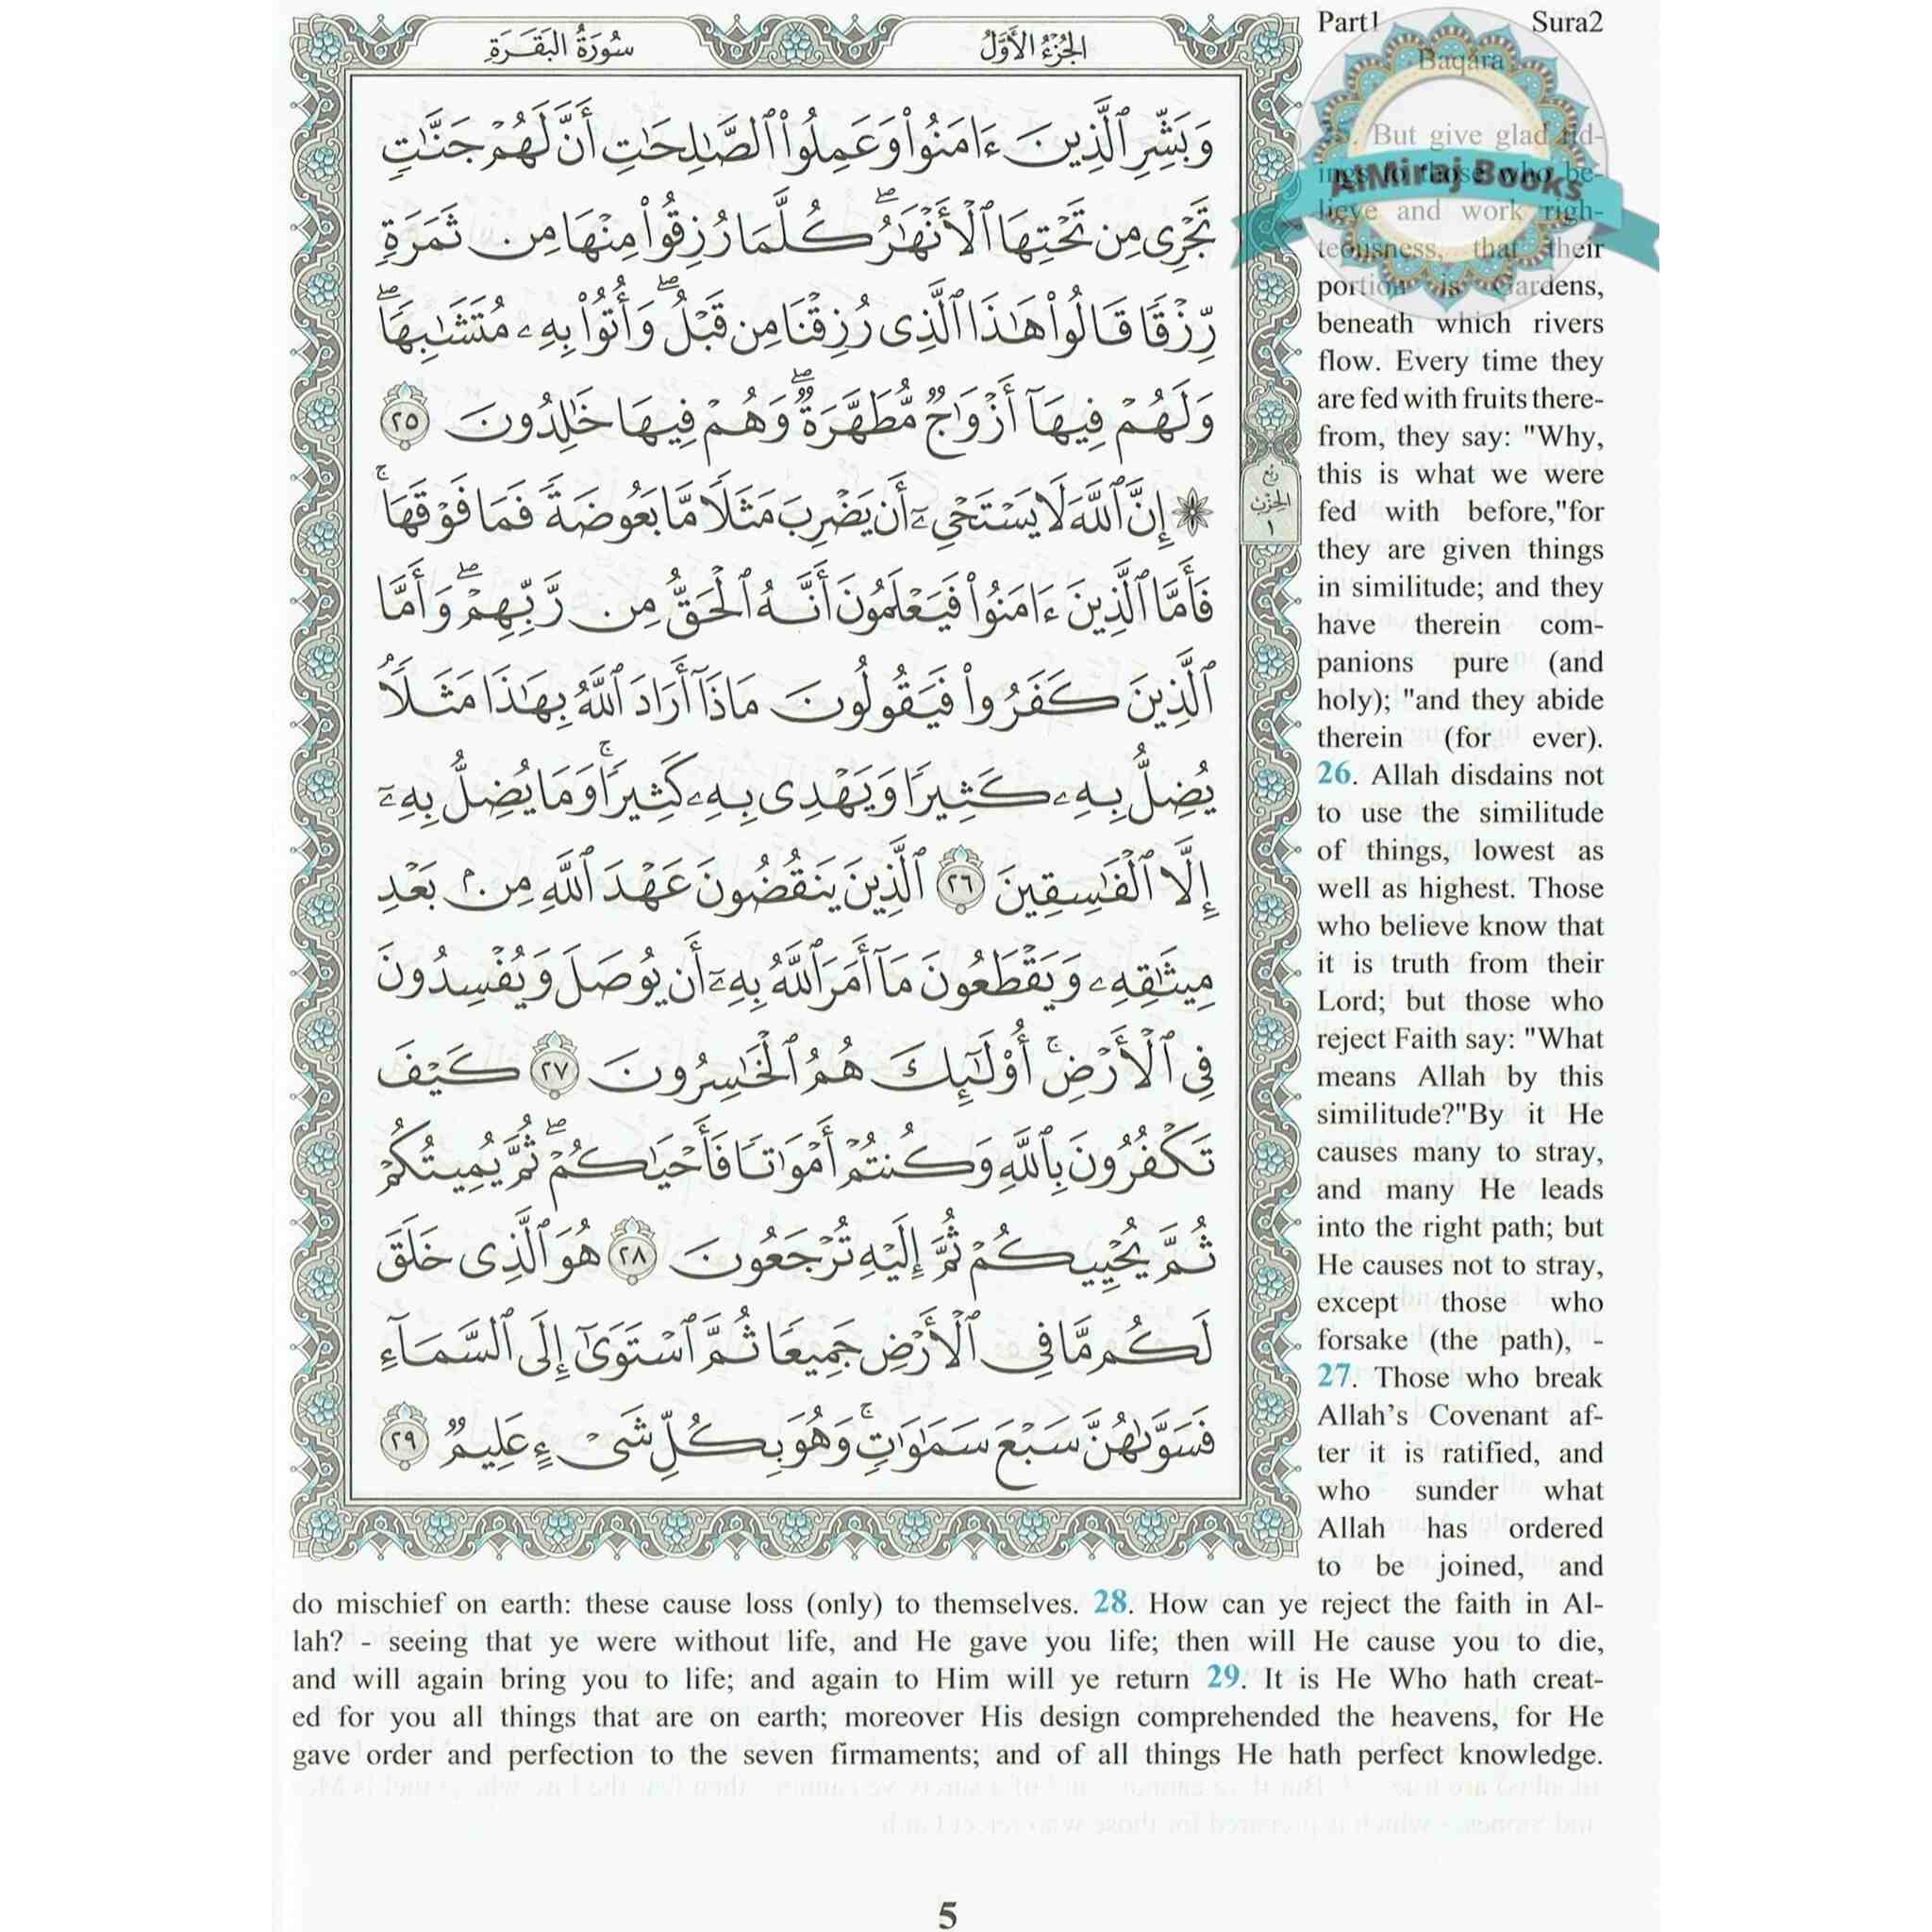 سُورَةُ البَقَرَةِ
الجُزْءُ الأَوَّلُ
وَبَشِّرِ ٱلَّذِينَ ءَامَنُوا۟ وَعَمِلُوا۟ ٱلصَّٰلِحَٰتِ أَنَّ لَهُمْ جَنَّٰتٍ
تَجْرِى مِن تَحْتِهَا ٱلْأَنْهَٰرُ ۖ كُلَّمَا رُزِقُوا۟ مِنْهَا مِن ثَمَرَةٍ
رِّزْقًا قَالُوا۟ هَٰذَا ٱلَّذِى رُزِقْنَا مِن قَبْلُ ۖ وَأُتُوا۟ بِهِۦ مُتَشَٰبِهًا ۖ
وَلَهُمْ فِيهَآ أَزْوَٰجٌ مُّطَهَّرَةٌ ۖ وَهُمْ فِيهَا خَٰلِدُونَ ٢٥
۞ إِنَّ ٱللَّهَ لَا يَسْتَحْىِۦٓ أَن يَضْرِبَ مَثَلًا مَّا بَعُوضَةً فَمَا فَوْقَهَا ۚ
فَأَمَّا ٱلَّذِينَ ءَامَنُوا۟ فَيَعْلَمُونَ أَنَّهُ ٱلْحَقُّ مِن رَّبِّهِمْ ۖ وَأَمَّا
ٱلَّذِينَ كَفَرُوا۟ فَيَقُولُونَ مَاذَآ أَرَادَ ٱللَّهُ بِهَٰذَا مَثَلًا ۘ
يُضِلُّ بِهِۦ كَثِيرًا وَيَهْدِى بِهِۦ كَثِيرًا ۚ وَمَا يُضِلُّ بِهِۦٓ
إِلَّا ٱلْفَٰسِقِينَ ٢٦ ٱلَّذِينَ يَنقُضُونَ عَهْدَ ٱللَّهِ مِنۢ بَعْدِ
مِيثَٰقِهِۦ وَيَقْطَعُونَ مَآ أَمَرَ ٱللَّهُ بِهِۦٓ أَن يُوصَلَ وَيُفْسِدُونَ
فِى ٱلْأَرْضِ ۚ أُو۟لَٰٓئِكَ هُمُ ٱلْخَٰسِرُونَ ٢٧ كَيْفَ
تَكْفُرُونَ بِٱللَّهِ وَكُنتُمْ أَمْوَٰتًا فَأَحْيَٰكُمْ ۖ ثُمَّ يُمِيتُكُمْ
ثُمَّ يُحْيِيكُمْ ثُمَّ إِلَيْهِ تُرْجَعُونَ ٢٨ هُوَ ٱلَّذِى خَلَقَ
لَكُم مَّا فِى ٱلْأَرْضِ جَمِيعًا ثُمَّ ٱسْتَوَىٰٓ إِلَى ٱلسَّمَآءِ
فَسَوَّىٰهُنَّ سَبْعَ سَمَٰوَٰتٍ ۚ وَهُوَ بِكُلِّ شَىْءٍ عَلِيمٌ ٢٩
ربع
الحزب
١
Part1 Sura2
Baqara
AlMiraj Books
But give glad tid-
ings to those who be-
lieve and work righ-
teousness, that their
portion is Gardens,
beneath which rivers
flow. Every time they
are fed with fruits there-
from, they say: "Why,
this is what we were
fed with before,"for
they are given things
in similitude; and they
have therein com-
panions pure (and
holy); "and they abide
therein (for ever).
26. Allah disdains not
to use the similitude
of things, lowest as
well as highest. Those
who believe know that
it is truth from their
Lord; but those who
reject Faith say: "What
means Allah by this
similitude?"By it He
causes many to stray,
and many He leads
into the right path; but
He causes not to stray,
except those who
forsake (the path), -
27. Those who break
Allah’s Covenant af-
ter it is ratified, and
who sunder what
Allah has ordered
to be joined, and
do mischief on earth: these cause loss (only) to themselves. 28. How can ye reject the faith in Al-
lah? - seeing that ye were without life, and He gave you life; then will He cause you to die,
and will again bring you to life; and again to Him will ye return 29. It is He Who hath creat-
ed for you all things that are on earth; moreover His design comprehended the heavens, for He
gave order and perfection to the seven firmaments; and of all things He hath perfect knowledge.
5